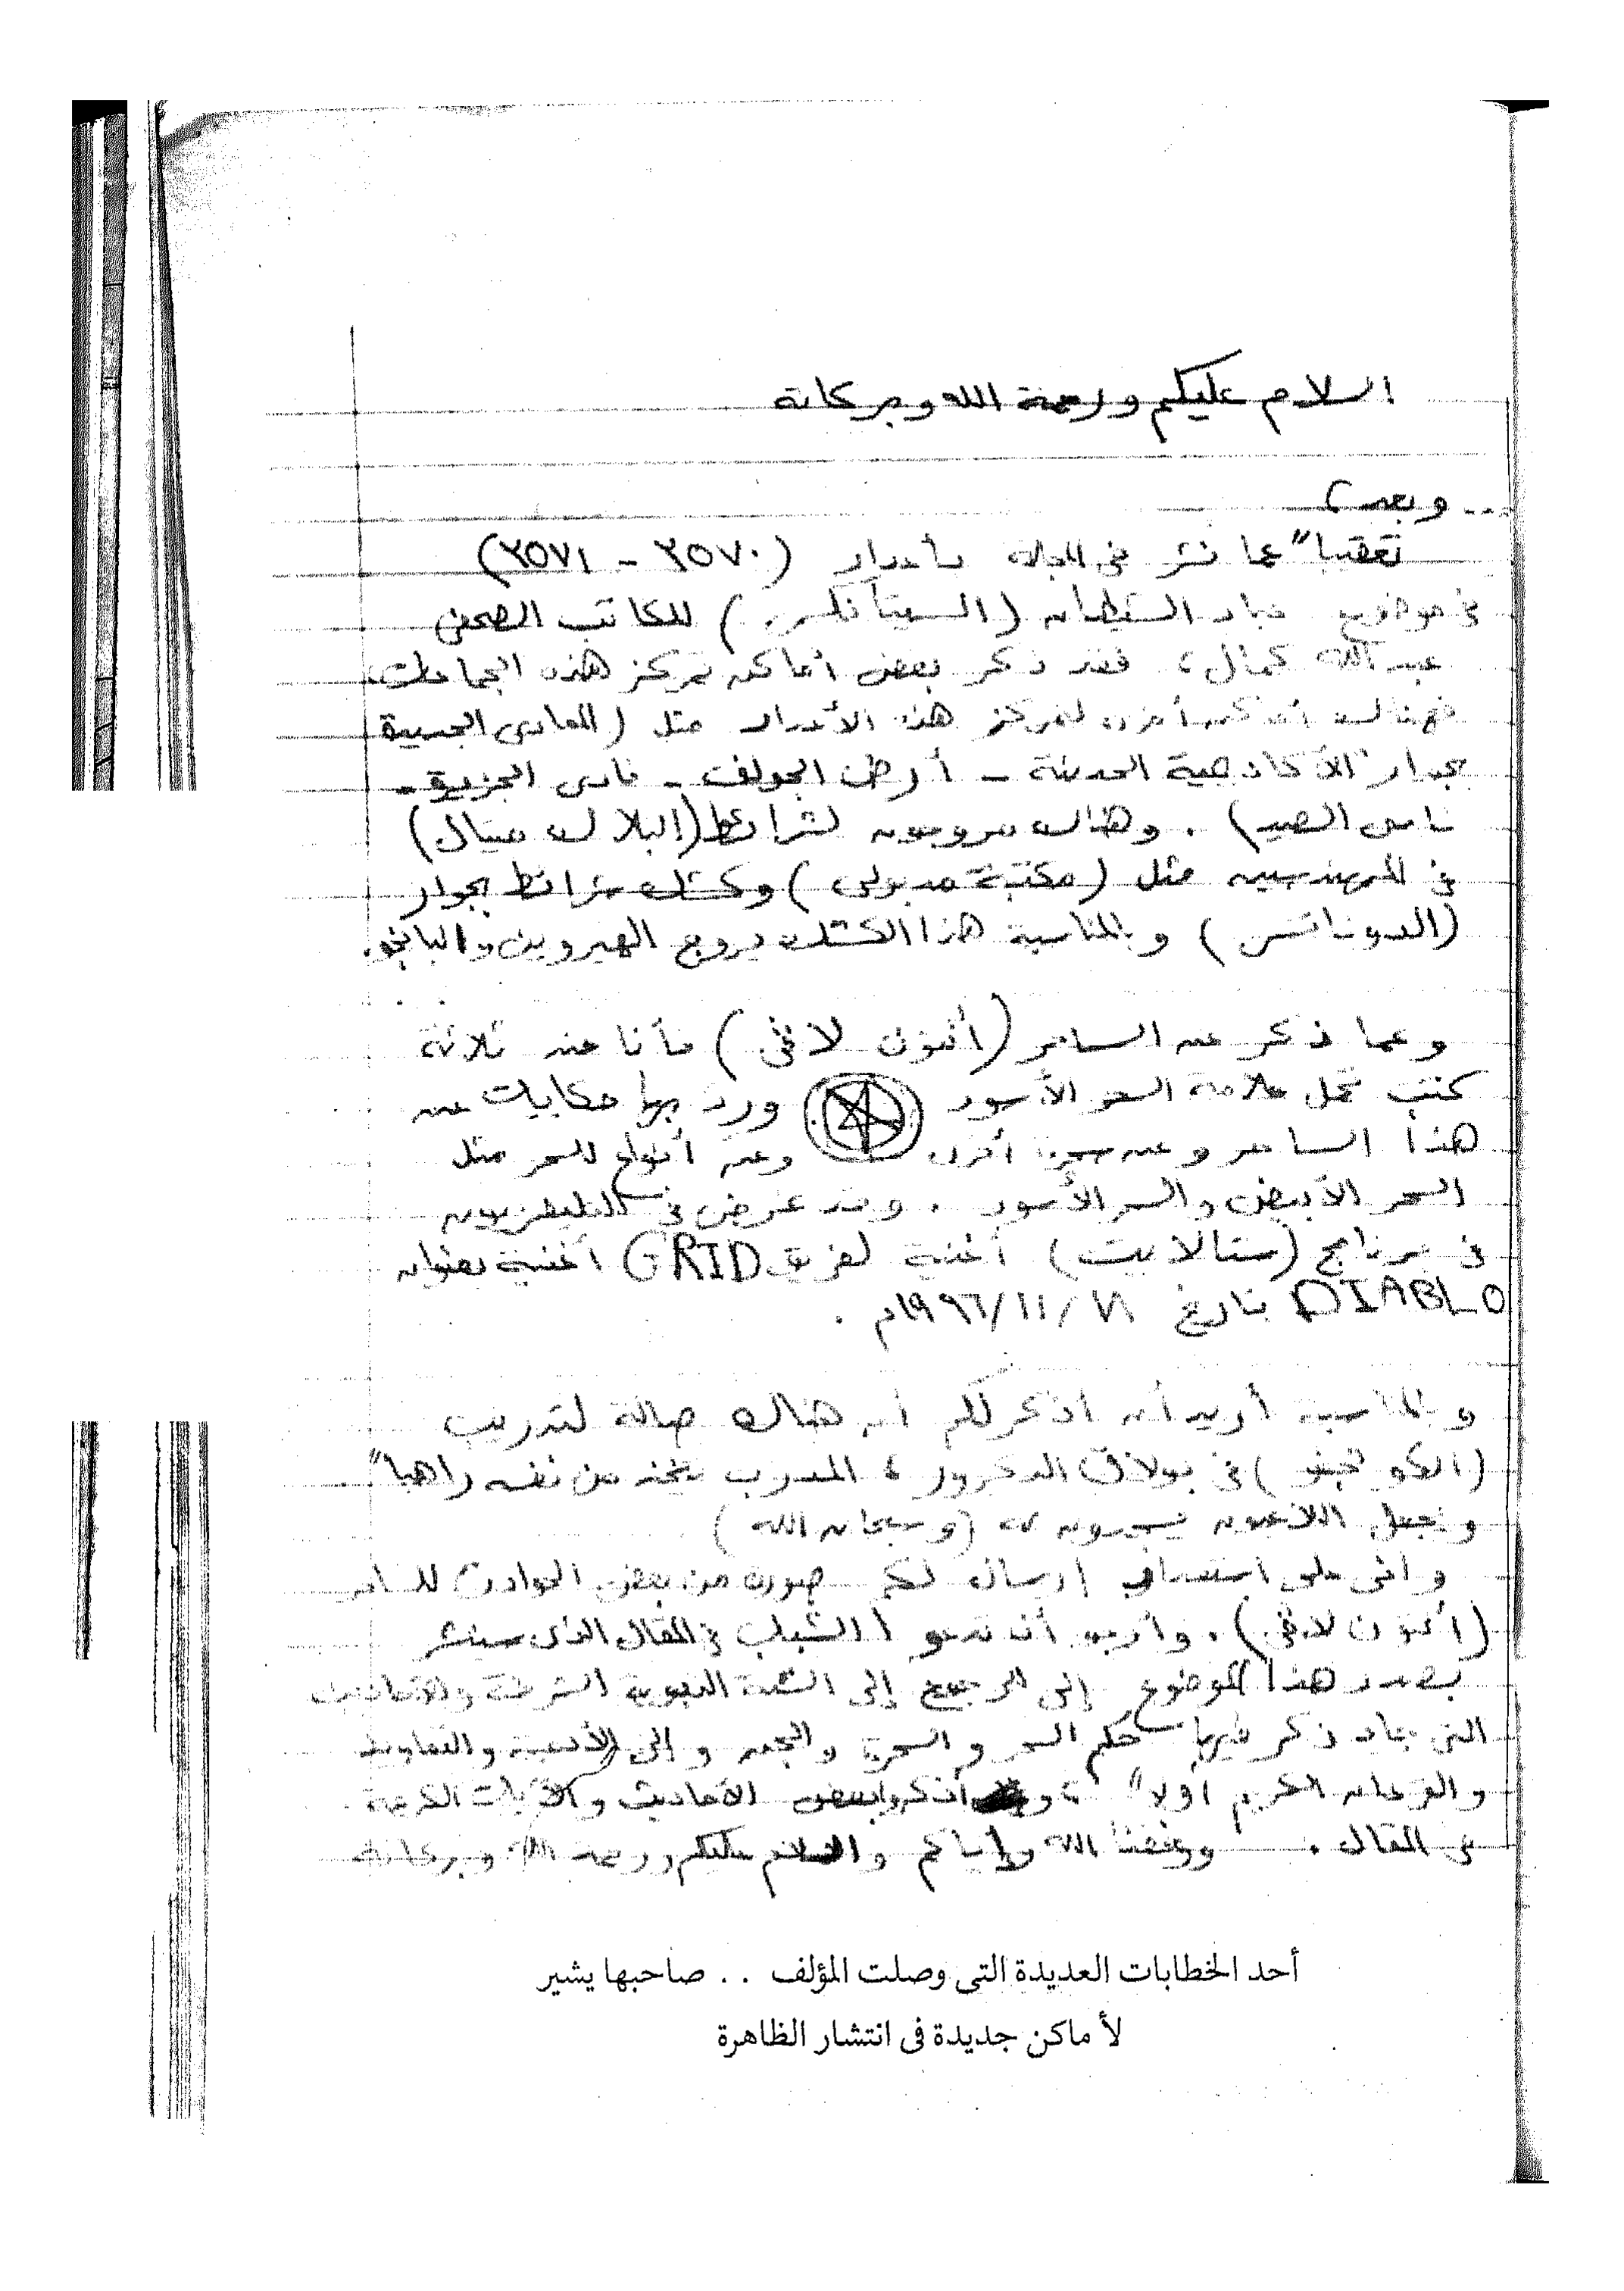 السلام عليكم ورحمة الله وبركاته
وبعد ،
تعقيباً عما نشر فى المجلة بأعداد (٣٥٧٠ - ٣٥٧١)
فى موضوع عباد الشيطان (السيتانكس) للكاتب الصحفى
عبد الله كمال ، فقد ذكر بعض أماكن تمركز هذه الجماعات
فهناك أماكن أخرى لتمركز هذه الأعداد مثل (المعادى الجديدة
بجوار الأكاديمية الحديثة - أرض الجولف - نادى الجزيرة -
نادى الصيد) . وهناك مروجون لشرائط (البلاك ميتال)
فى المهندسين مثل (مكتبة مدبولى) وكشك شرائط بجوار
(الدوناتس) وبالمناسبة هذا الكشك يروج الهيروين والبانجو.
وعما ذكر عن الساحر (أنتون لافى) فأنا عندى ثلاثة
كتب تحمل علامة السحر الأسود ورد بها حكايات عن
هذا الساحر وعن أخرى وعن أنواع السحر مثل
السحر الأبيض والسحر الأسود . وقد عرض فى التليفزيون
فى برنامج (ستالايت) أغنية لفريق GRID أغنية بعنوان
DIABLO بتاريخ ١٩٩٦/١١/٢٨م .
وبالمناسبة أريد أن أذكر لكم أن هناك صالة لتدريب
(الكونغفو) فى بولاق الدكرور ، المدرب يتخذ من نفسه راهباً
ويجعل اللاعبون يسجدون له (وسبحان الله)
وانى على استعداد إرسال لكم صورة من بعض الحوادث للساحر
(أنتون لافى) . وأريد أن تدعوا الشباب فى المقال الذى سينشر
بصدد هذا الموضوع إلى الرجوع إلى السنة النبوية الشريفة والأحاديث
التى جاء ذكر فيها حكم السحر والسحرة والجن وإلى الأدعية والتعاويذ
والقرءان الكريم اولاً ، أذكروا بعض الأحاديث والآيات الكريمة
فى المقال . وفقنا الله وإياكم والسلام عليكم ورحمة الله وبركاته
أحد الخطابات العديدة التى وصلت المؤلف . . صاحبها يشير
لأماكن جديدة فى انتشار الظاهرة